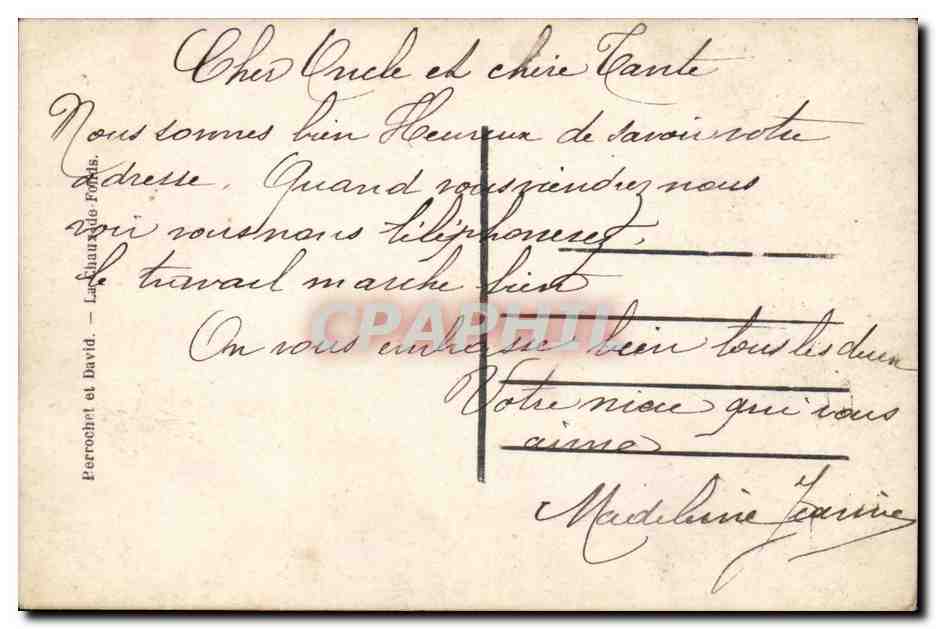 Cher Oncle et chère Tante
Nous sommes bien Heureux de savoir votre
adresse. Quand vous viendrez nous
voir vous nous téléphonerez.
le travail marche bien
On vous embrasse bien tous les deux
Votre niece qui vous
aime
Madeleine Jeanine
Perrochet et David. — La Chaux-de-Fonds.
CPAPHIL